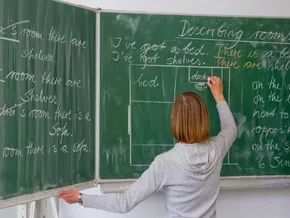 's room there are
shelves.
room there are
shelves.
's room there is a
sofa.
room there is a sofa.
Describing rooms
I've got a bed. There is a bed
I've got shelves. There are shel
bed
desk
on the
on the
next to
opposite
on the